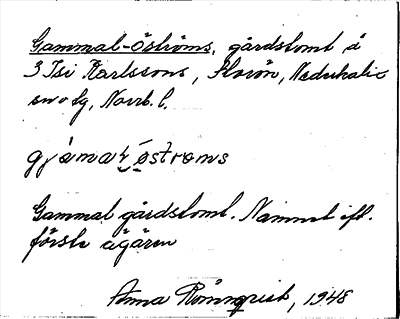 Gammal-Öströms, gårdstomt å
3 Isi Karlssons, Storön, Nederkalix
sn o fg, Norrb. l.
gjámaḷ ǿstrøms
Gammal gårdstomt. Namnet eft.
första ägaren
Anna Rönnqvist, 1948